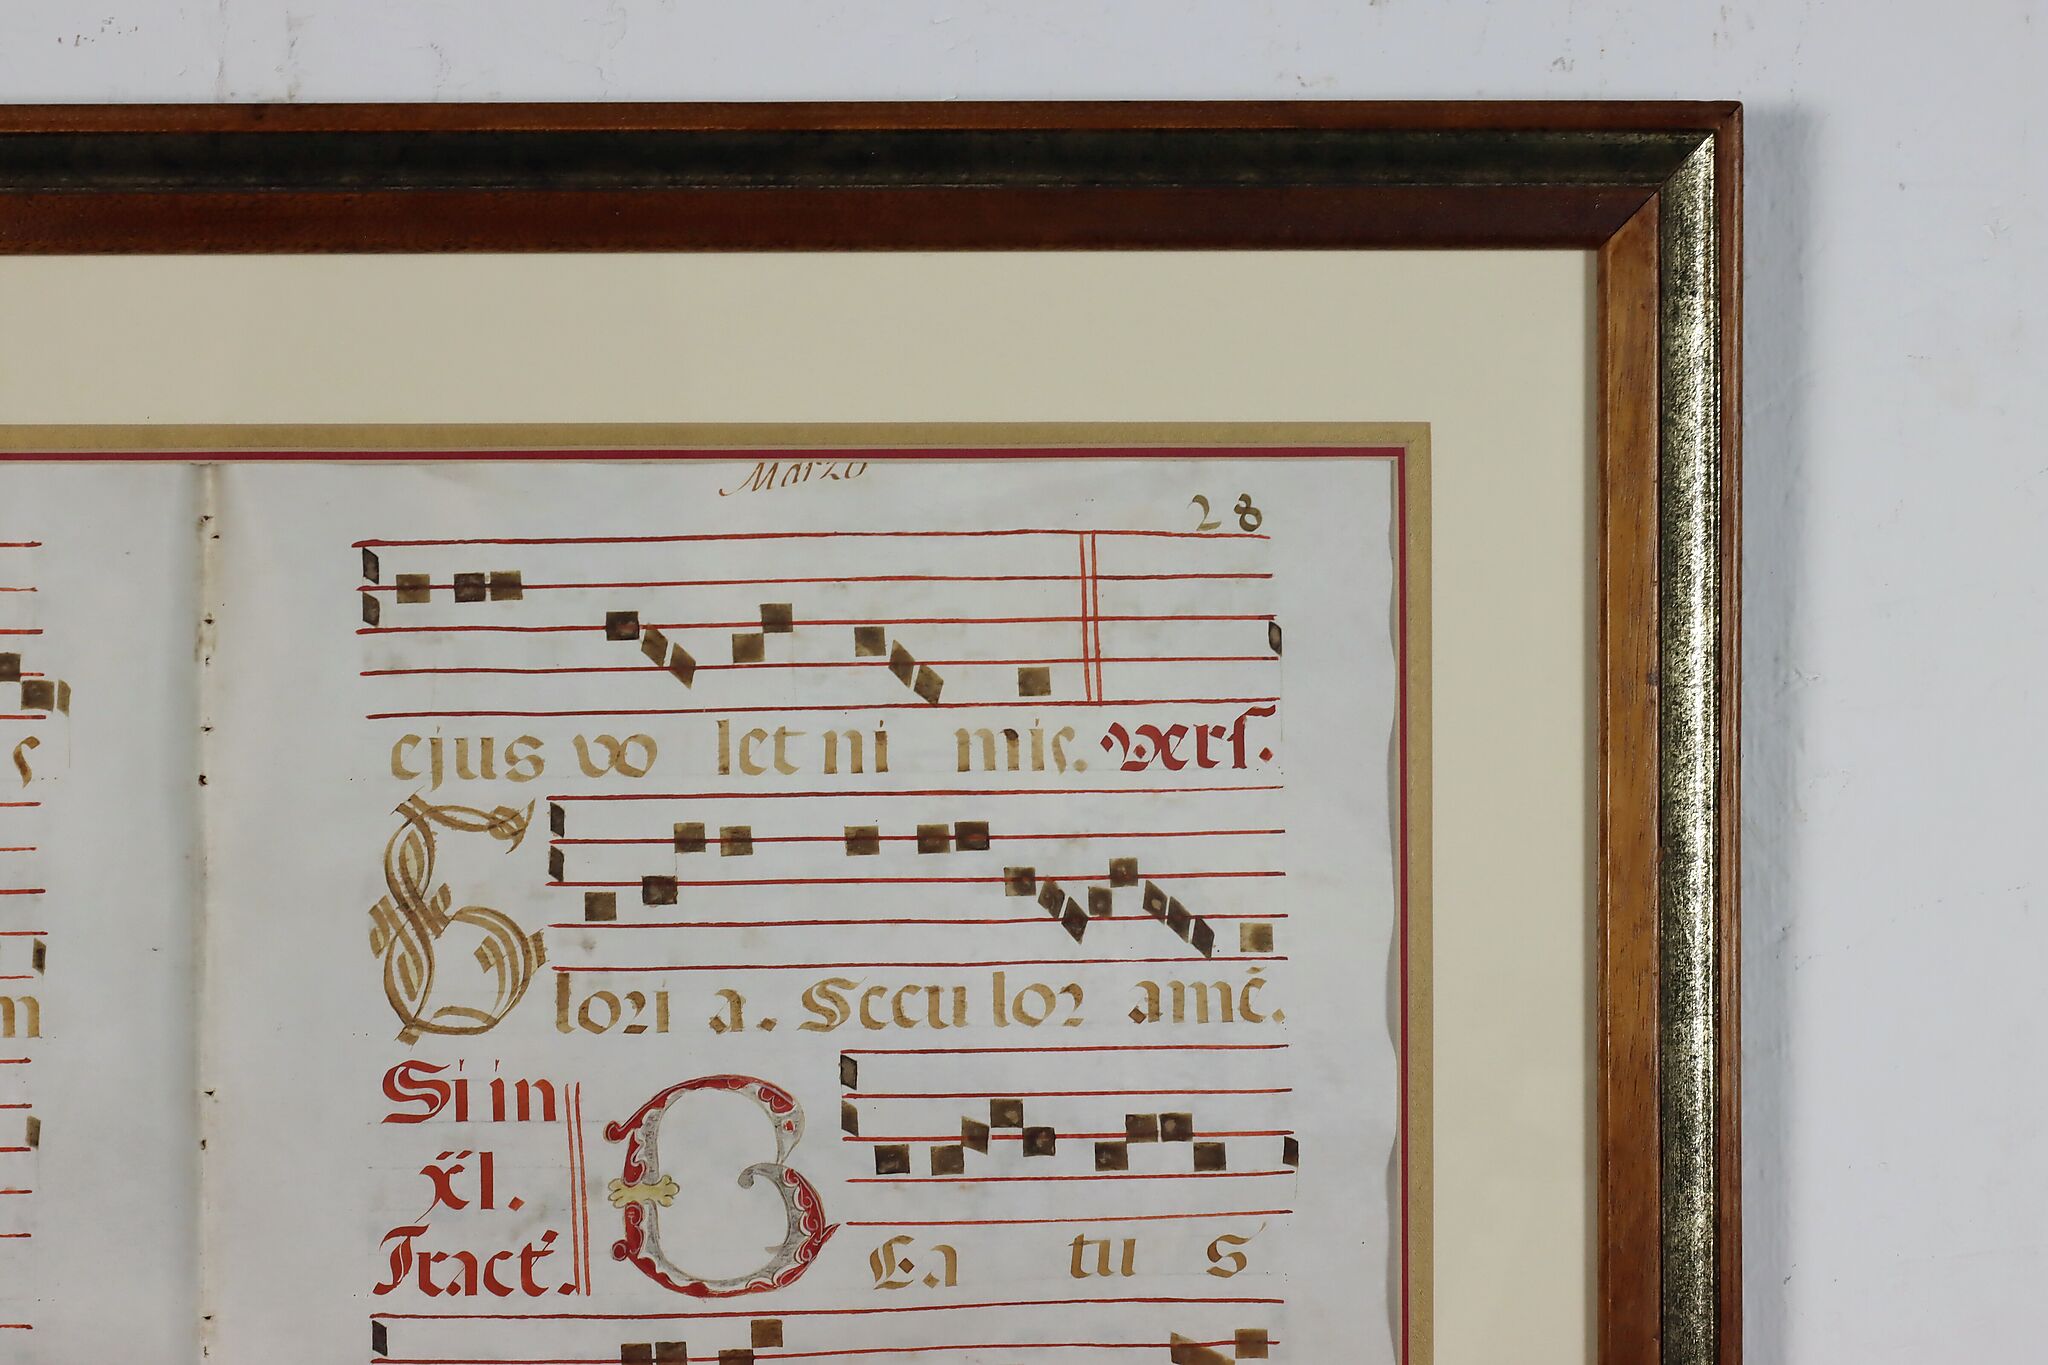 Marzo
28
ejus vo let ni mis. Vers.
Glori a. Seculor amē.
Si in
xl.
Tract.
BEa tu s
m